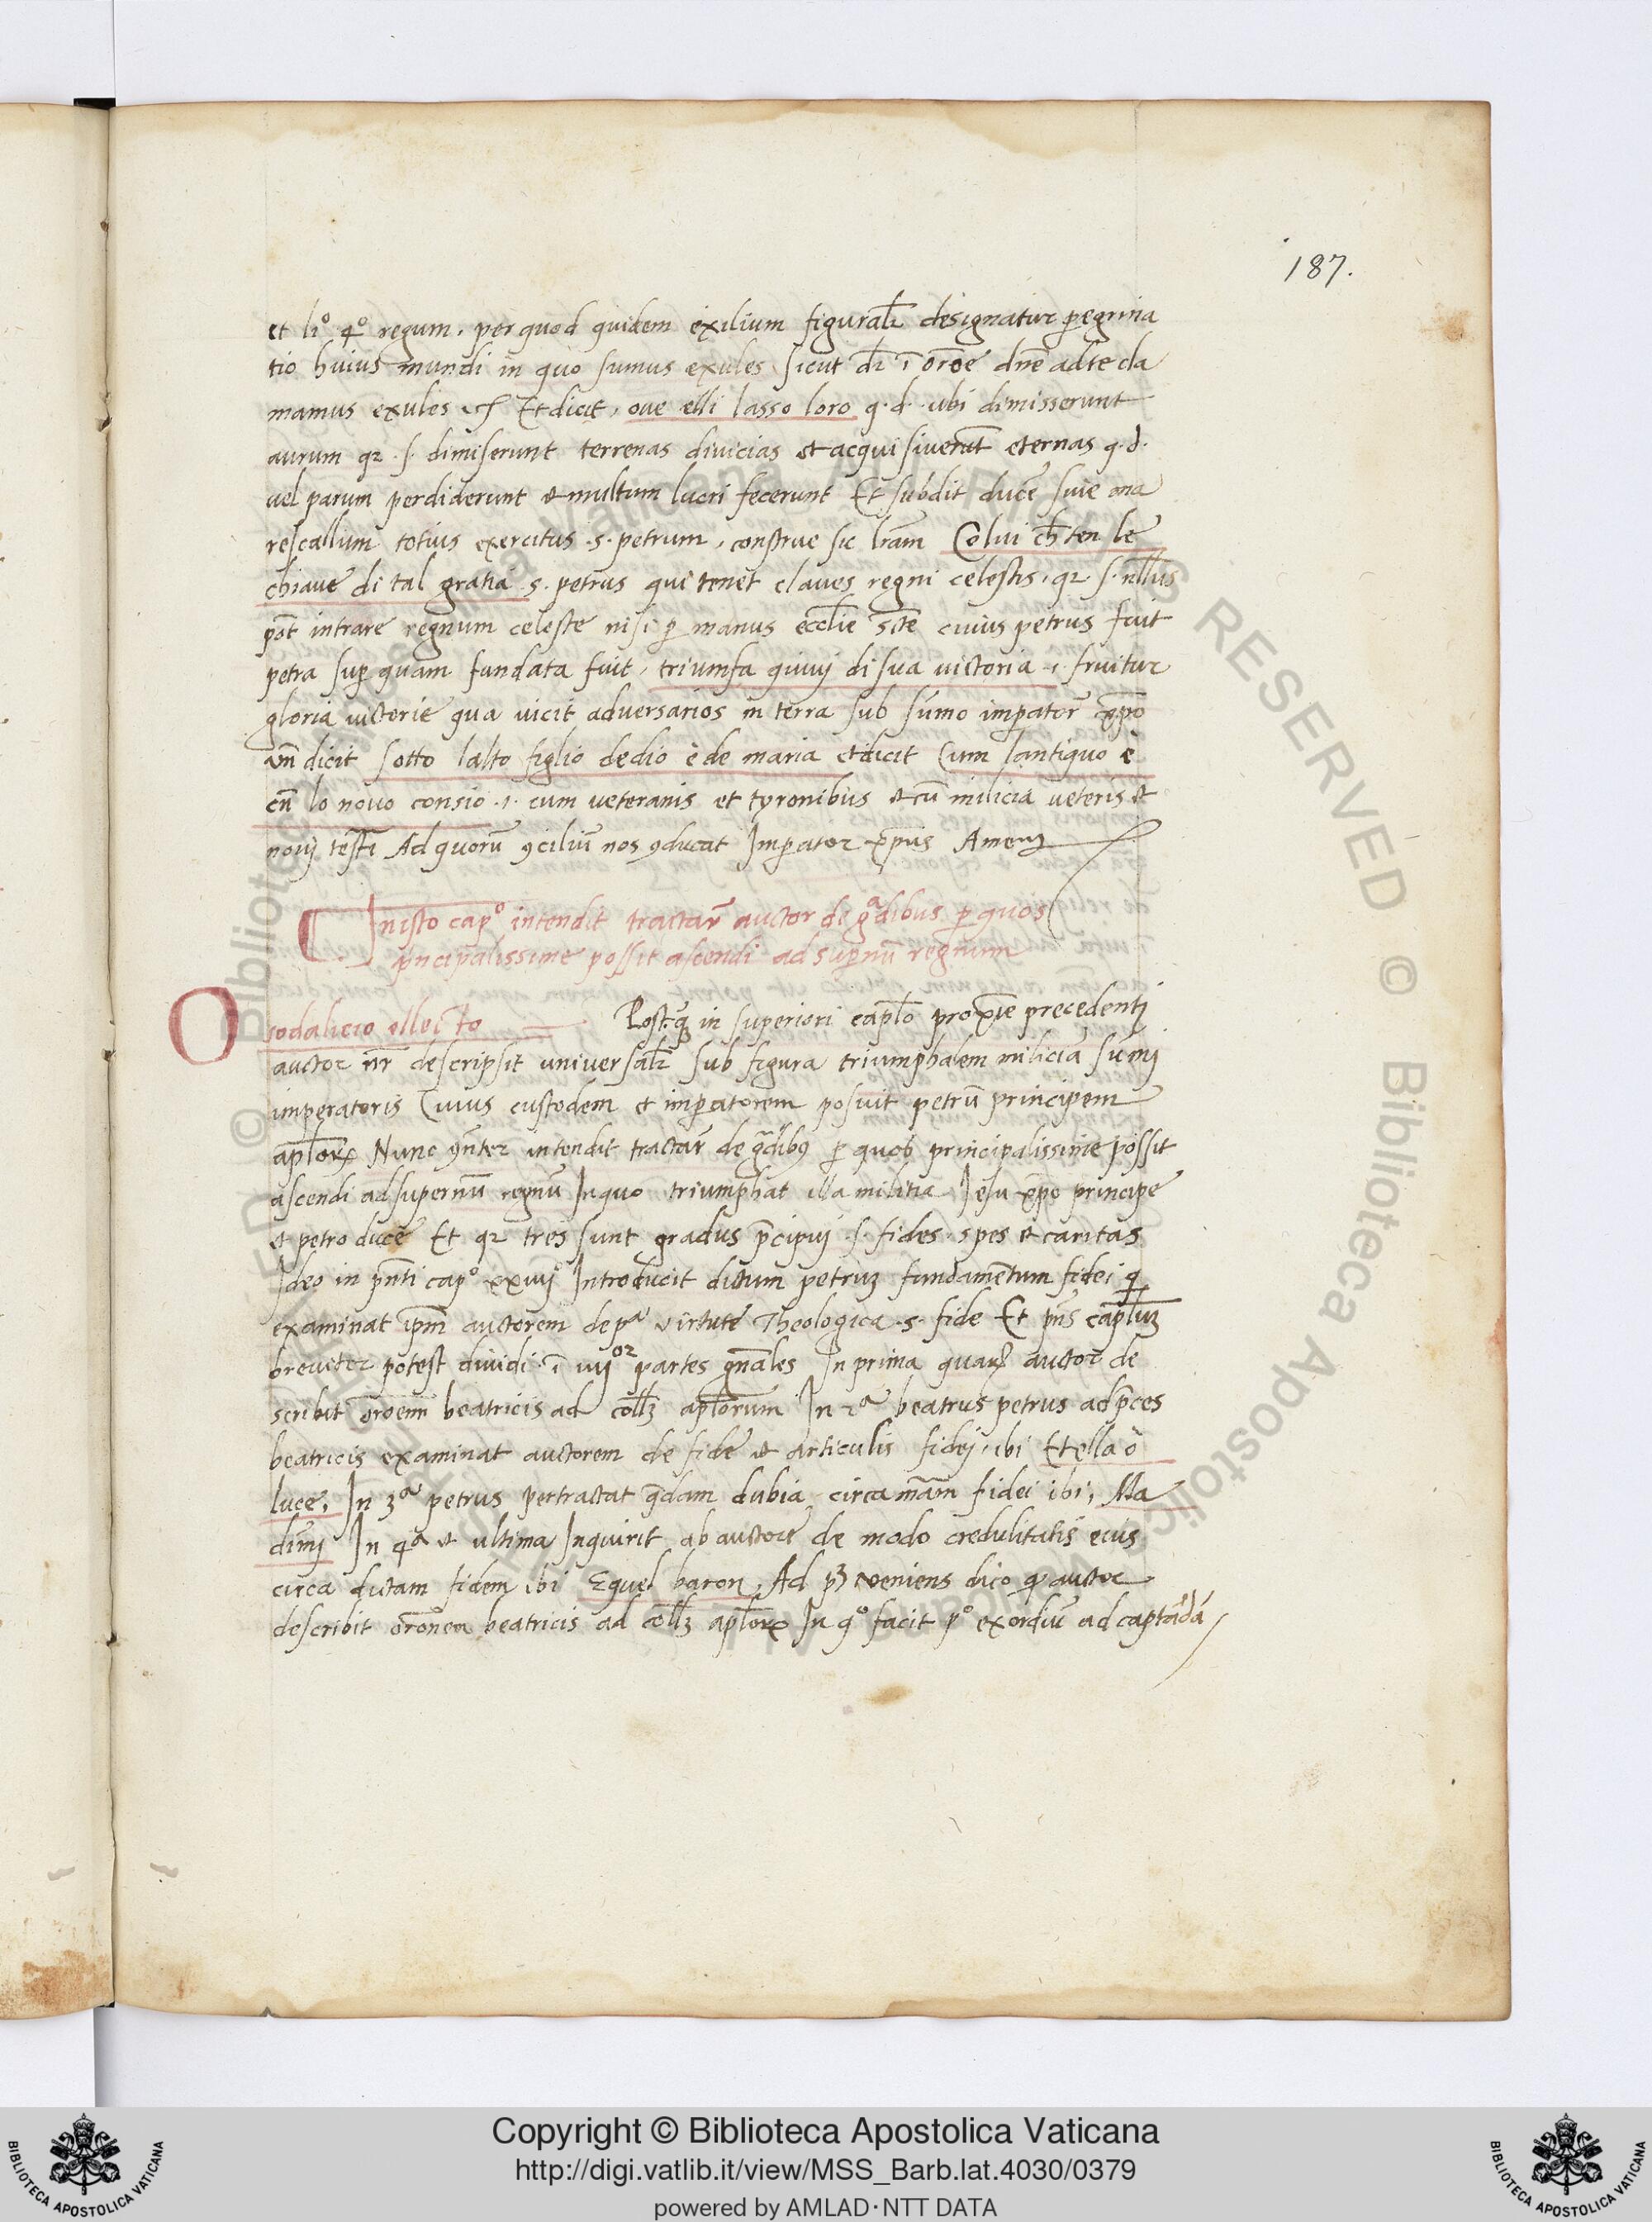 187.
et li° 4° regum. per quod quidem exilium figuralr designatur peregrina
tio huius mundi in quo sumus exules sicut dr ī orōe dnē ad te cla
mamus exules Et dicit, oue elli lasso loro q.d. ubi dimisserunt
aurum qz .s. dimiserunt terrenas diuicias et acquisiuerūt eternas q.d.
uel parum perdiderunt et multum lucri fecerunt Et subdit ducē suie ma
rescallum totius exercitus .s. petrum, construe sic lrām Colui ch ten le
chiaue di tal gratia .s. petrus qui tenet claues regni celestis, qz .s. nllus
pōt intrare regnum celeste nisi p manus ecclīe scte cuius petrus fuit
petra sup quam fundata fuit, triumfa quiui di sua uictoria .i. fruitur
gloria uictorie qua uicit adversarios in terra sub sūmo imperatorē xp̄o
vn̄ dicit sotto lalto figlio dedio è de maria et dicit Cum lantiquo è
cn̄ lo nouo consio .i. cum ueteranis et tyronibus et cū milicia ueteris et
nouj testi Ad quorū ꝯciliuʒ nos ꝯducat Imperator xp̄us Amen
In isto cap° intendit tractar auctor de gᵃdibus p quos
pncipalissime possit ascendi ad supernū regnum
O sodalicio ellecto Postqʒ in superiori caplō proxīe precedenti
auctor nr̄ descripsit uniuersalr sub figura triumphalem miliciā sūmi
imperatoris Cuius custodem et imperatorem posuit petrū principem
aplorꝝ Nunc ꝯn̄ter intendit tractar̄ de gᵃdibꝯ p quos principalissime possit
ascendi ad supernū regnū In quo triumphat illa militia Iesu xp̄o principe
et petro ducē Et qz tres sunt gradus p̄cipuj .s. fides. spes et caritas
Ideo in pn̄ti cap° xxiiij° Introducit dictum petruʒ fundamētum fidei q
examinat ip̄m auctorem de pᵃ uirtute Theologica .s. fide Et pn̄s capl̄uʒ
breuiter potest diuidi ī iiijᵒʳ partes gnāles In prima quarꝝ auctor de
scribit orōem beatricis ad collʒ aplorum In 2ᵃ beatus petrus ad p̄ces
beatricis examinat auctorem de fide et articulis fidej, ibi Et ella o
luce, In 3ᵃ petrus pertractat qᵃdam dubia circa mām fidei ibi, Ma
dimj In 4ᵃ et ultima Inquirit ab auctore de modo credulitatis eius
circa dictam fidem ibi Equel baron, Ad pʒ ueniens dico qᵈ auctor
describit orōnem beatricis ad collʒ aplorꝝ In q° facit p° exordiū ad captādā
Copyright © Biblioteca Apostolica Vaticana
http://digi.vatlib.it/view/MSS_Barb.lat.4030/0379
powered by AMLAD·NTT DATA
BIBLIOTECA APOSTOLICA VATICANA
BIBLIOTECA APOSTOLICA VATICANA